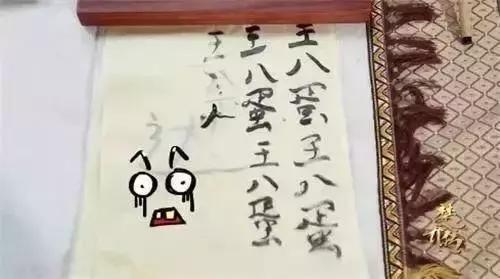 王八蛋王八蛋
王八蛋王八蛋
王